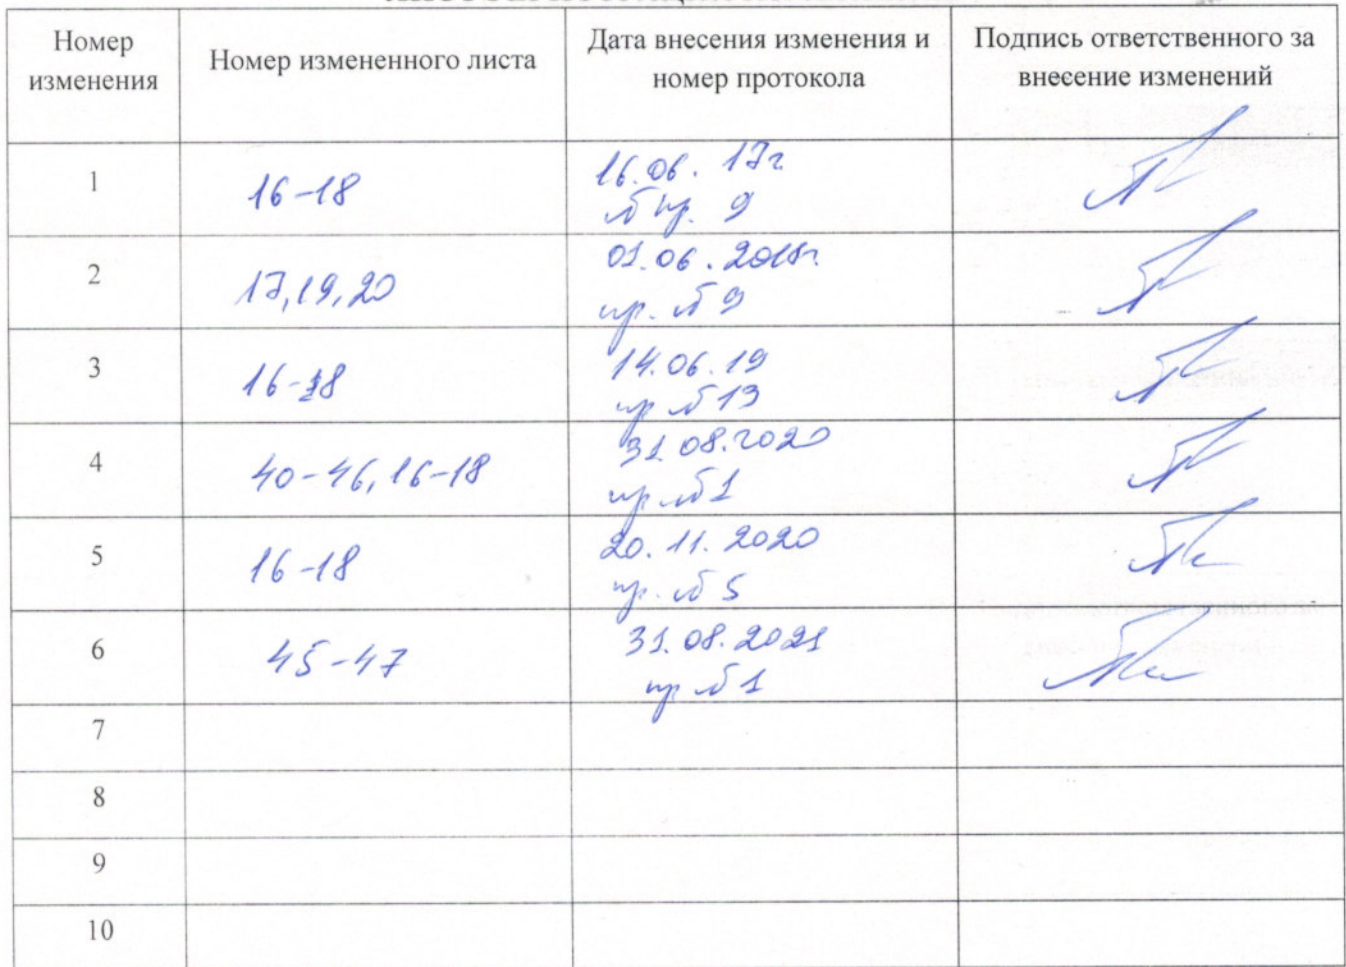 Номер изменения | Номер измененного листа | Дата внесения изменения и номер протокола | Подпись ответственного за внесение изменений
1 | 16-18 | 16.06.17г № пр. 9
2 | 17,19,20 | 01.06.2018г. пр. № 9
3 | 16-18 | 14.06.19 пр №13
4 | 40-46, 16-18 | 31.08.2020 пр. №1
5 | 16-18 | 20.11.2020 пр. № 5
6 | 45-47 | 31.08.2021 пр №1
7
8
9
10